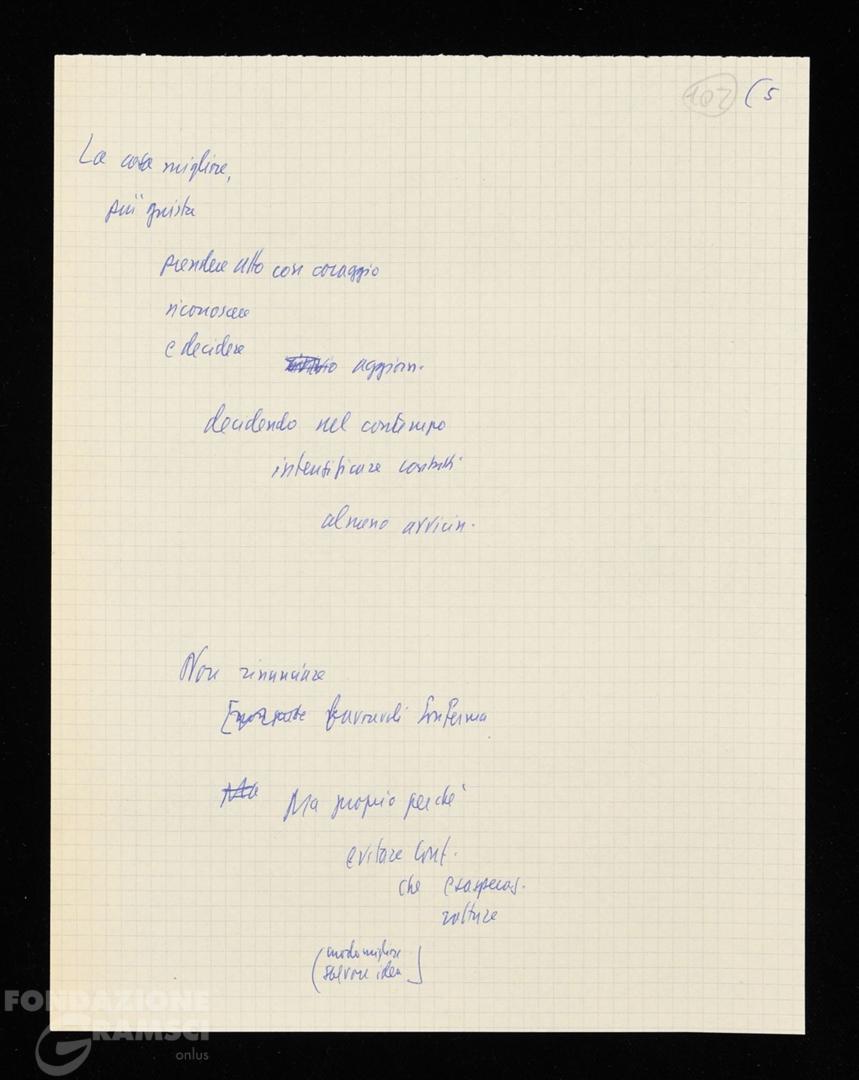 102 (5
La cosa migliore,
più giusta
prendere atto con coraggio
riconoscere
e decidere
rinvio aggiorn.
decidendo nel contempo
intensificare contatti
almeno avvicin.
Non rinunciare
favorevoli Conferenza
Ma
Ma proprio perché
evitare Conf.
che esasperas.
rotture
(modo migliore
salvare idea)
FONDAZIONE
GRAMSCI
onlus